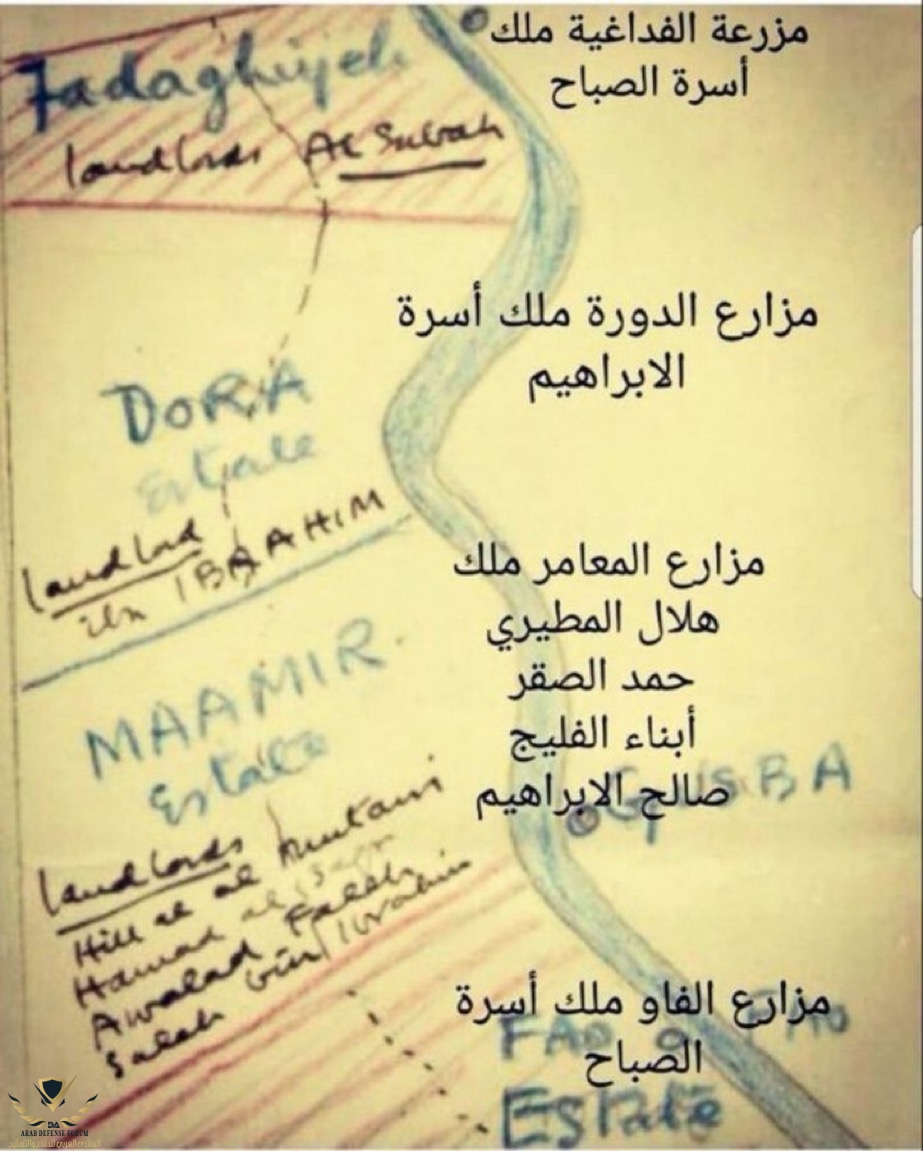 مزرعة الفداغية ملك
أسرة الصباح
Fadaghiyeh
landlords Al Subah
مزارع الدورة ملك أسرة
الابراهيم
DORA
Estate
landlord
ibn IBRAHIM
مزارع المعامر ملك
هلال المطيري
حمد الصقر
أبناء الفليج
صالح الابراهيم
MAAMIR
Estate
landlords
Hillal al Mutairi
Hamad al Sagr
Awalad Faleh
Saleh bin Ibrahim
مزارع الفاو ملك أسرة
الصباح
FAO FAO
Estate
DA
ARAB DEFENSE FORUM